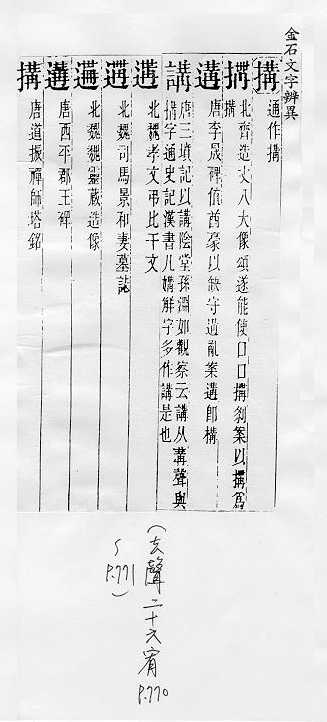 金石文字辨異
搆
通作構
搆 北齊造丈八大像頌遂能使口口搆剏案以搆爲
構
遘 唐李晟碑值酋豪以缺守遘亂案遘即構
講 唐三墳記以講陰堂孫淵如觀察云講从冓聲與
搆字通史記漢書凡媾解字多作講是也
遘 北魏孝文弔比干文
遘 北魏司馬景和妻墓誌
遘 北魏魏靈藏造像
遘 唐西平郡王碑
搆 唐道振禪師塔銘
(去聲二十六宥 P.770
~ P.771)